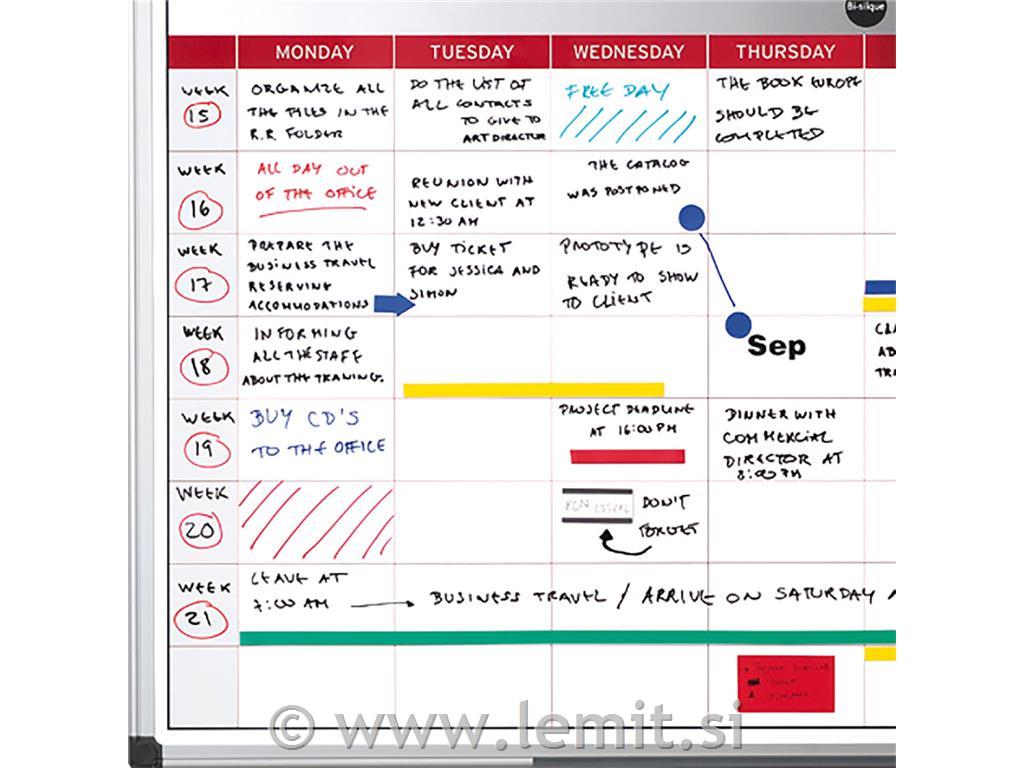 Bi-silque
MONDAY TUESDAY WEDNESDAY THURSDAY
WEEK
15
ORGANIZE ALL
THE FILES IN THE
R.R. FOLDER
DO THE LIST OF
ALL CONTACTS
TO GIVE TO
ART DIRECTOR
FREE DAY
THE BOOK EUROPE
SHOULD BE
COMPLETED
WEEK
16
ALL DAY OUT
OF THE OFFICE
REUNION WITH
NEW CLIENT AT
12:30 AM
THE CATALOG
WAS POSTPONED
WEEK
17
PREPARE THE
BUSINESS TRAVEL
RESERVING
ACCOMMODATIONS
BUY TICKET
FOR JESSICA AND
SIMON
PROTOTYPE IS
READY TO SHOW
TO CLIENT
Sep
WEEK
18
INFORMING
ALL THE STAFF
ABOUT THE TRANING.
WEEK
19
BUY CD'S
TO THE OFFICE
PROJECT DEADLINE
AT 16:00 PM
DINNER WITH
COMMERCIAL
DIRECTOR AT
8:00 PM
WEEK
20
DON'T
FORGET
WEEK
21
LEAVE AT
7:00 AM
BUSINESS TRAVEL / ARRIVE ON SATURDAY
© www.lemit.si